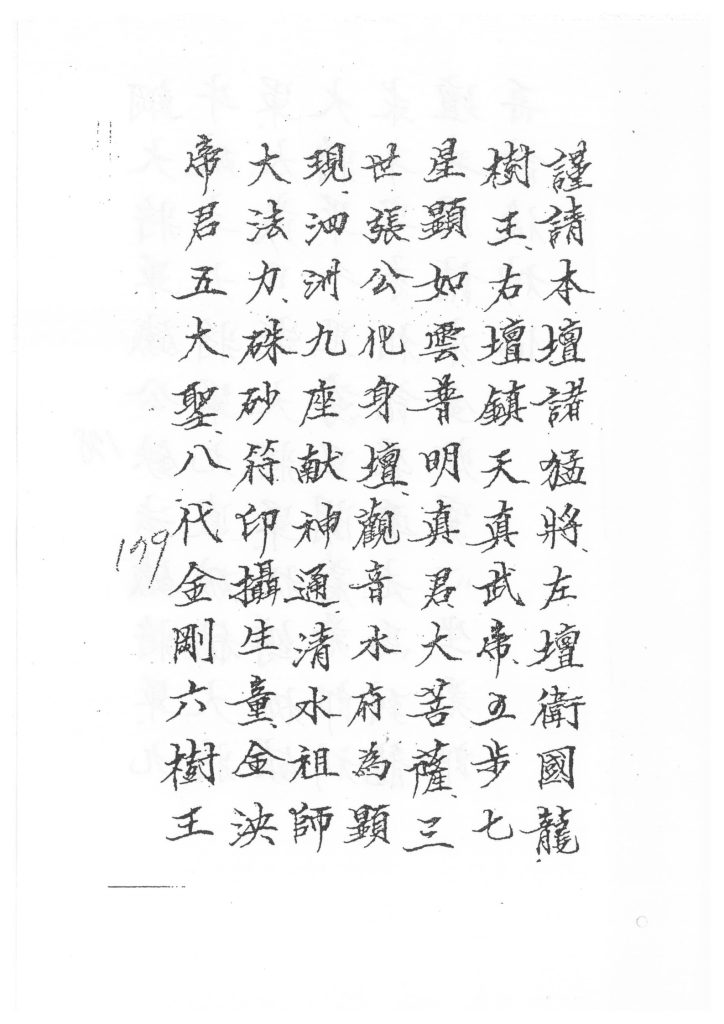 謹請本壇諸猛將左壇衛國龍
樹王右壇鎮天真武帝五步七
星顯如雲普明真君大菩薩三
世張公化身壇觀音水府為顯
現泗洲九座献神通清水祖師
大法力硃砂符印攝生童金泱
帝君五大聖八代金剛六樹王
179